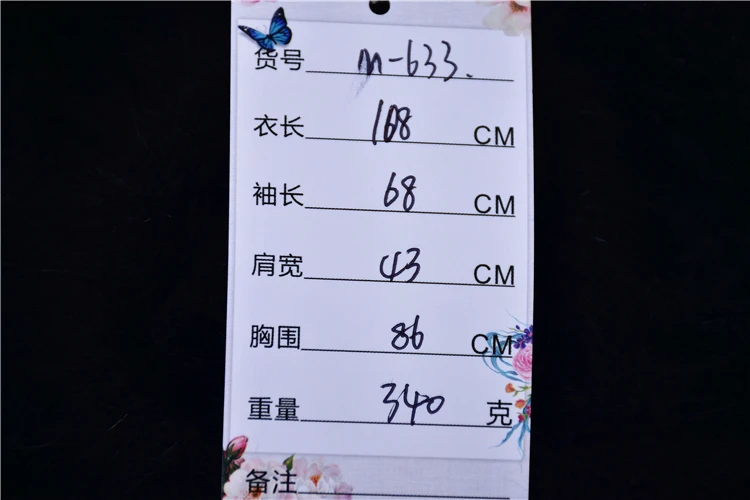 货号 m-633.
衣长 108 CM
袖长 68 CM
肩宽 43 CM
胸围 86 CM
重量 340 克
备注